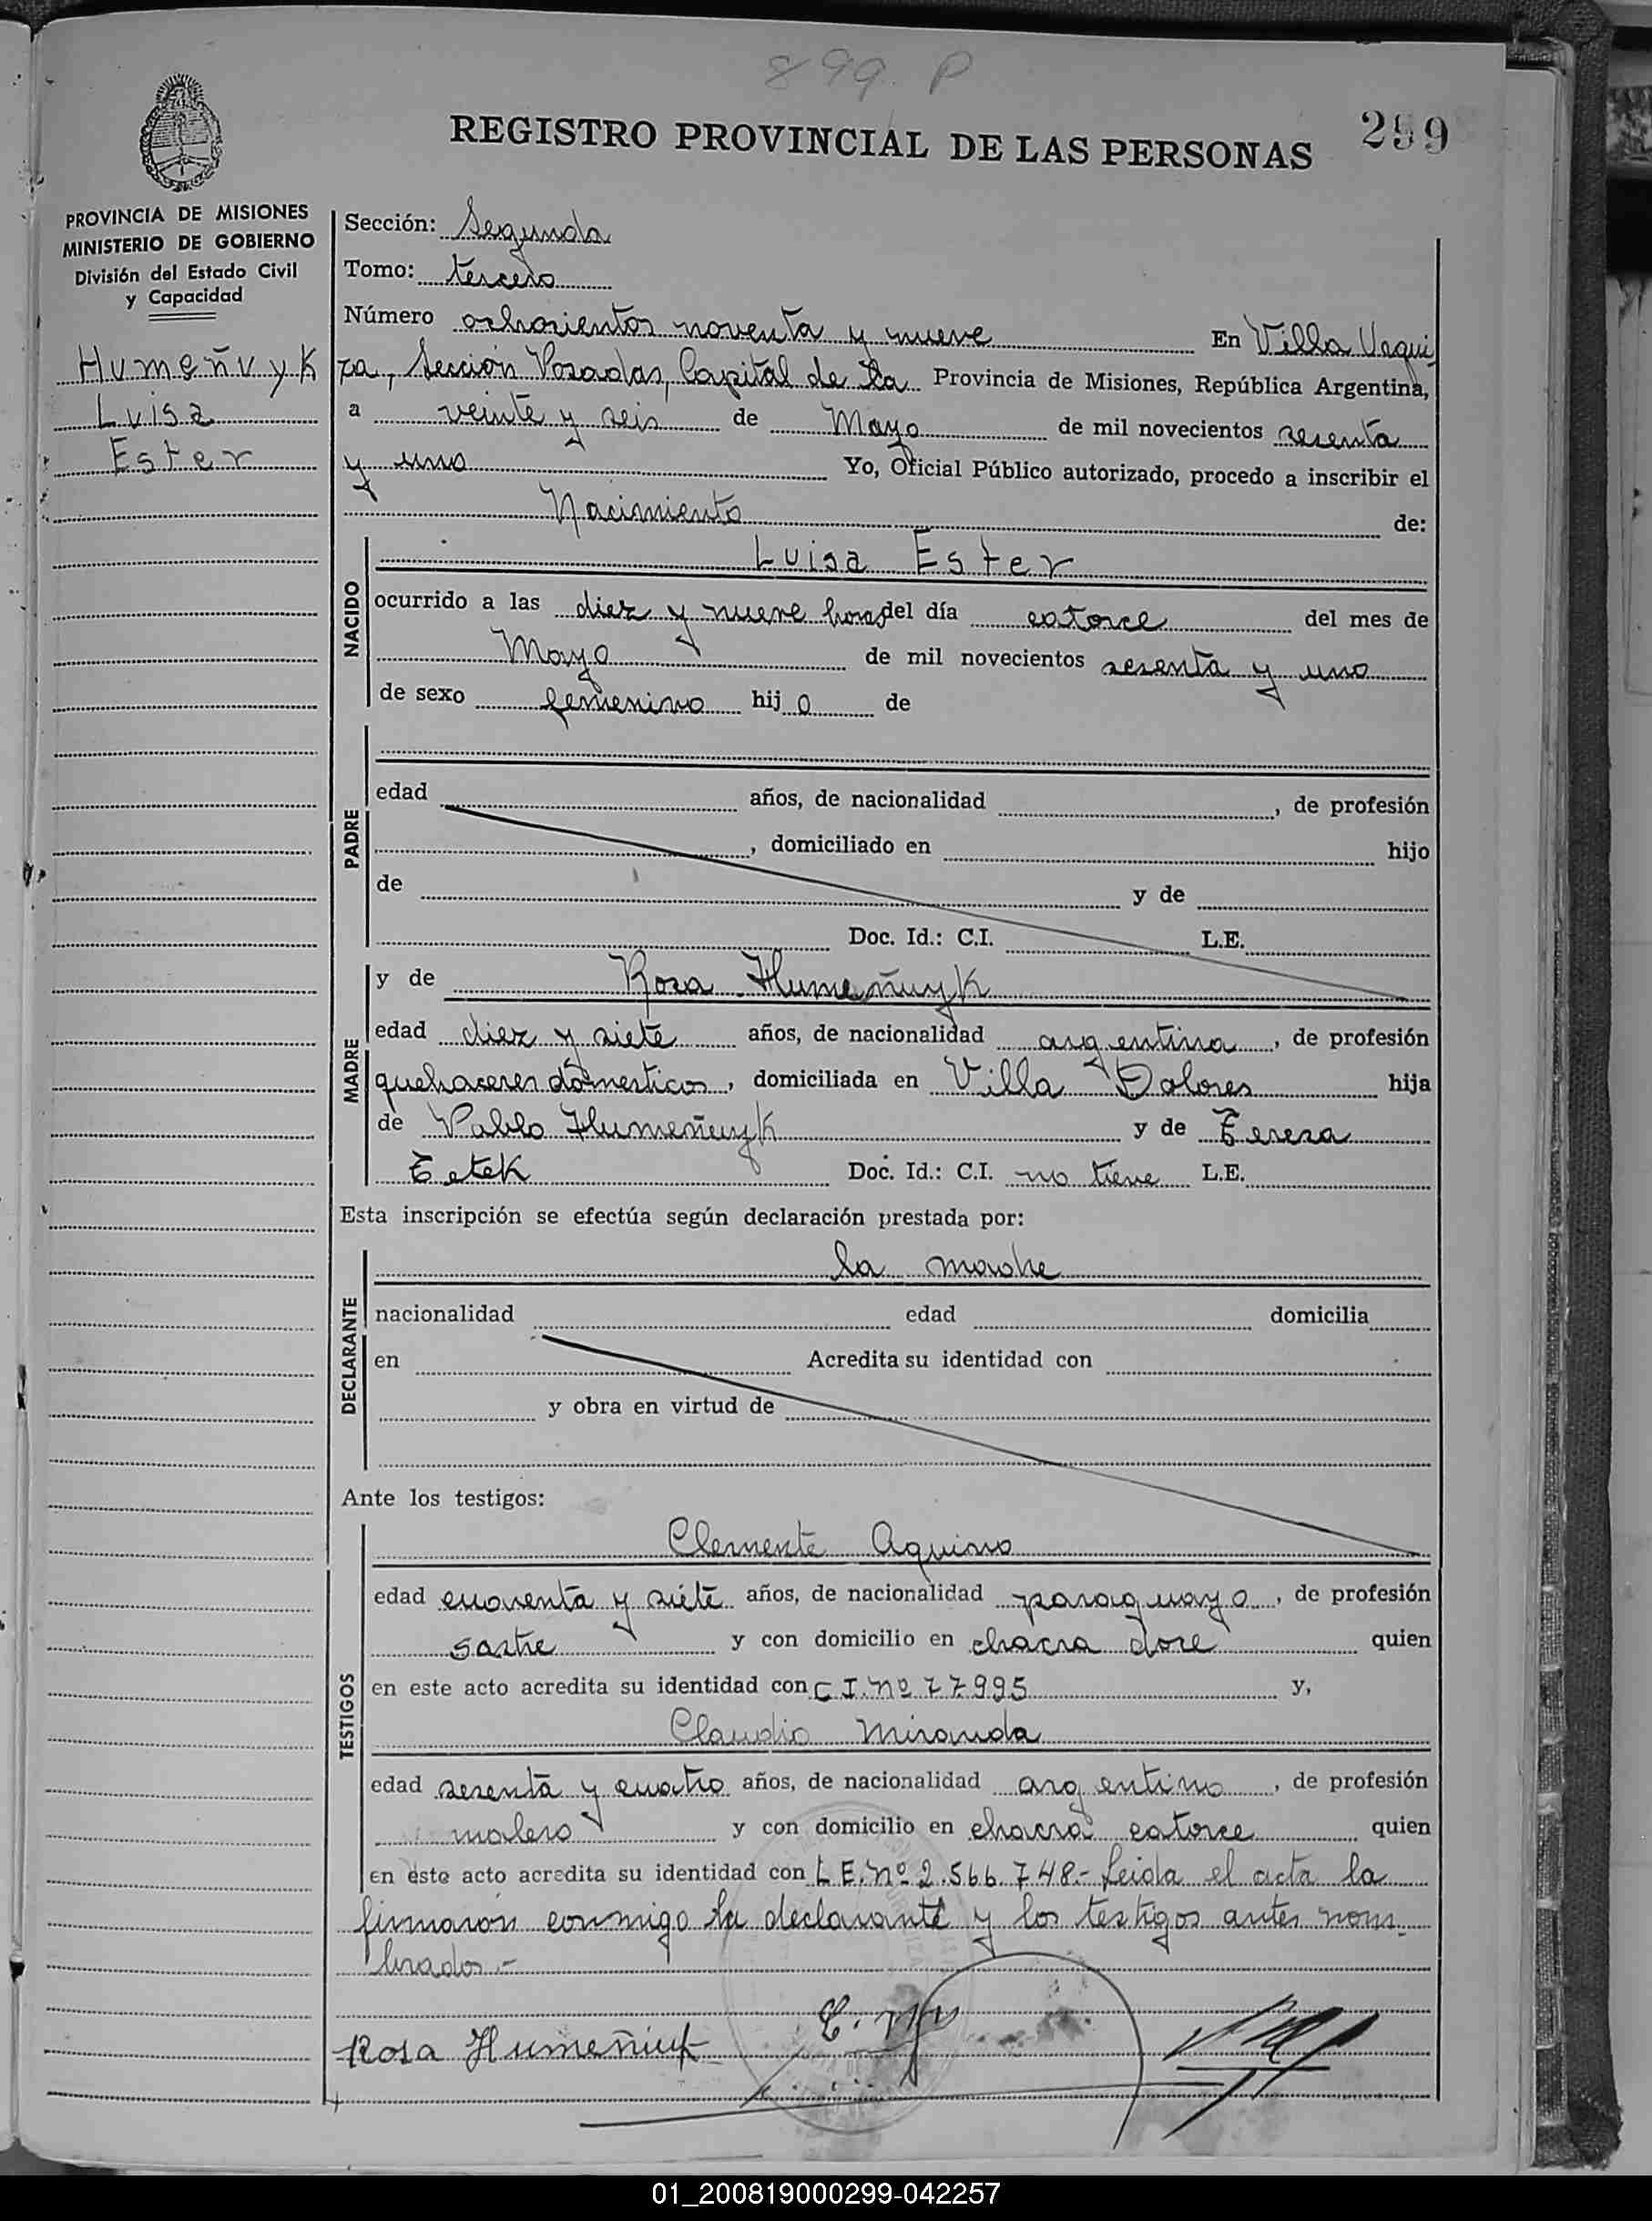 899 P
REGISTRO PROVINCIAL DE LAS PERSONAS 299
PROVINCIA DE MISIONES
MINISTERIO DE GOBIERNO
División del Estado Civil
y Capacidad
Humeñuyk
Luisa
Ester
Sección: Segunda
Tomo: tercero
Número ochocientos noventa y nueve En Villa Urqui
za, Sección Posadas, Capital de la Provincia de Misiones, República Argentina,
a veinte y seis de Mayo de mil novecientos sesenta
y uno Yo, Oficial Público autorizado, procedo a inscribir el
Nacimiento de:
NACIDO
Luisa Ester
ocurrido a las diez y nueve horas del día catorce del mes de
Mayo de mil novecientos sesenta y uno
de sexo femenino hij o de
PADRE
edad años, de nacionalidad , de profesión
, domiciliado en hijo
de y de
Doc. Id.: C.I. L.E.
MADRE
y de Rosa Humeñuyk
edad diez y siete años, de nacionalidad argentina, de profesión
quehaceres domesticos, domiciliada en Villa Dolores hija
de Pablo Humeñuyk y de Teresa
Tetek Doc. Id.: C.I. no tiene L.E.
Esta inscripción se efectúa según declaración prestada por:
DECLARANTE
la madre
nacionalidad edad domicilia
en Acredita su identidad con
y obra en virtud de
Ante los testigos:
TESTIGOS
Clemente Aquino
edad cuarenta y siete años, de nacionalidad paraguayo, de profesión
sastre y con domicilio en chacra doce quien
en este acto acredita su identidad con C I. Nº 77995 y,
Claudio Miranda
edad sesenta y cuatro años, de nacionalidad argentino, de profesión
y con domicilio en chacra catorce quien
en este acto acredita su identidad con L E. Nº 2.566.748.- Leida el acta la
firmaron conmigo la declarante y los testigos antes nom
brados.-
Rosa Humeñiuk
01_200819000299-042257